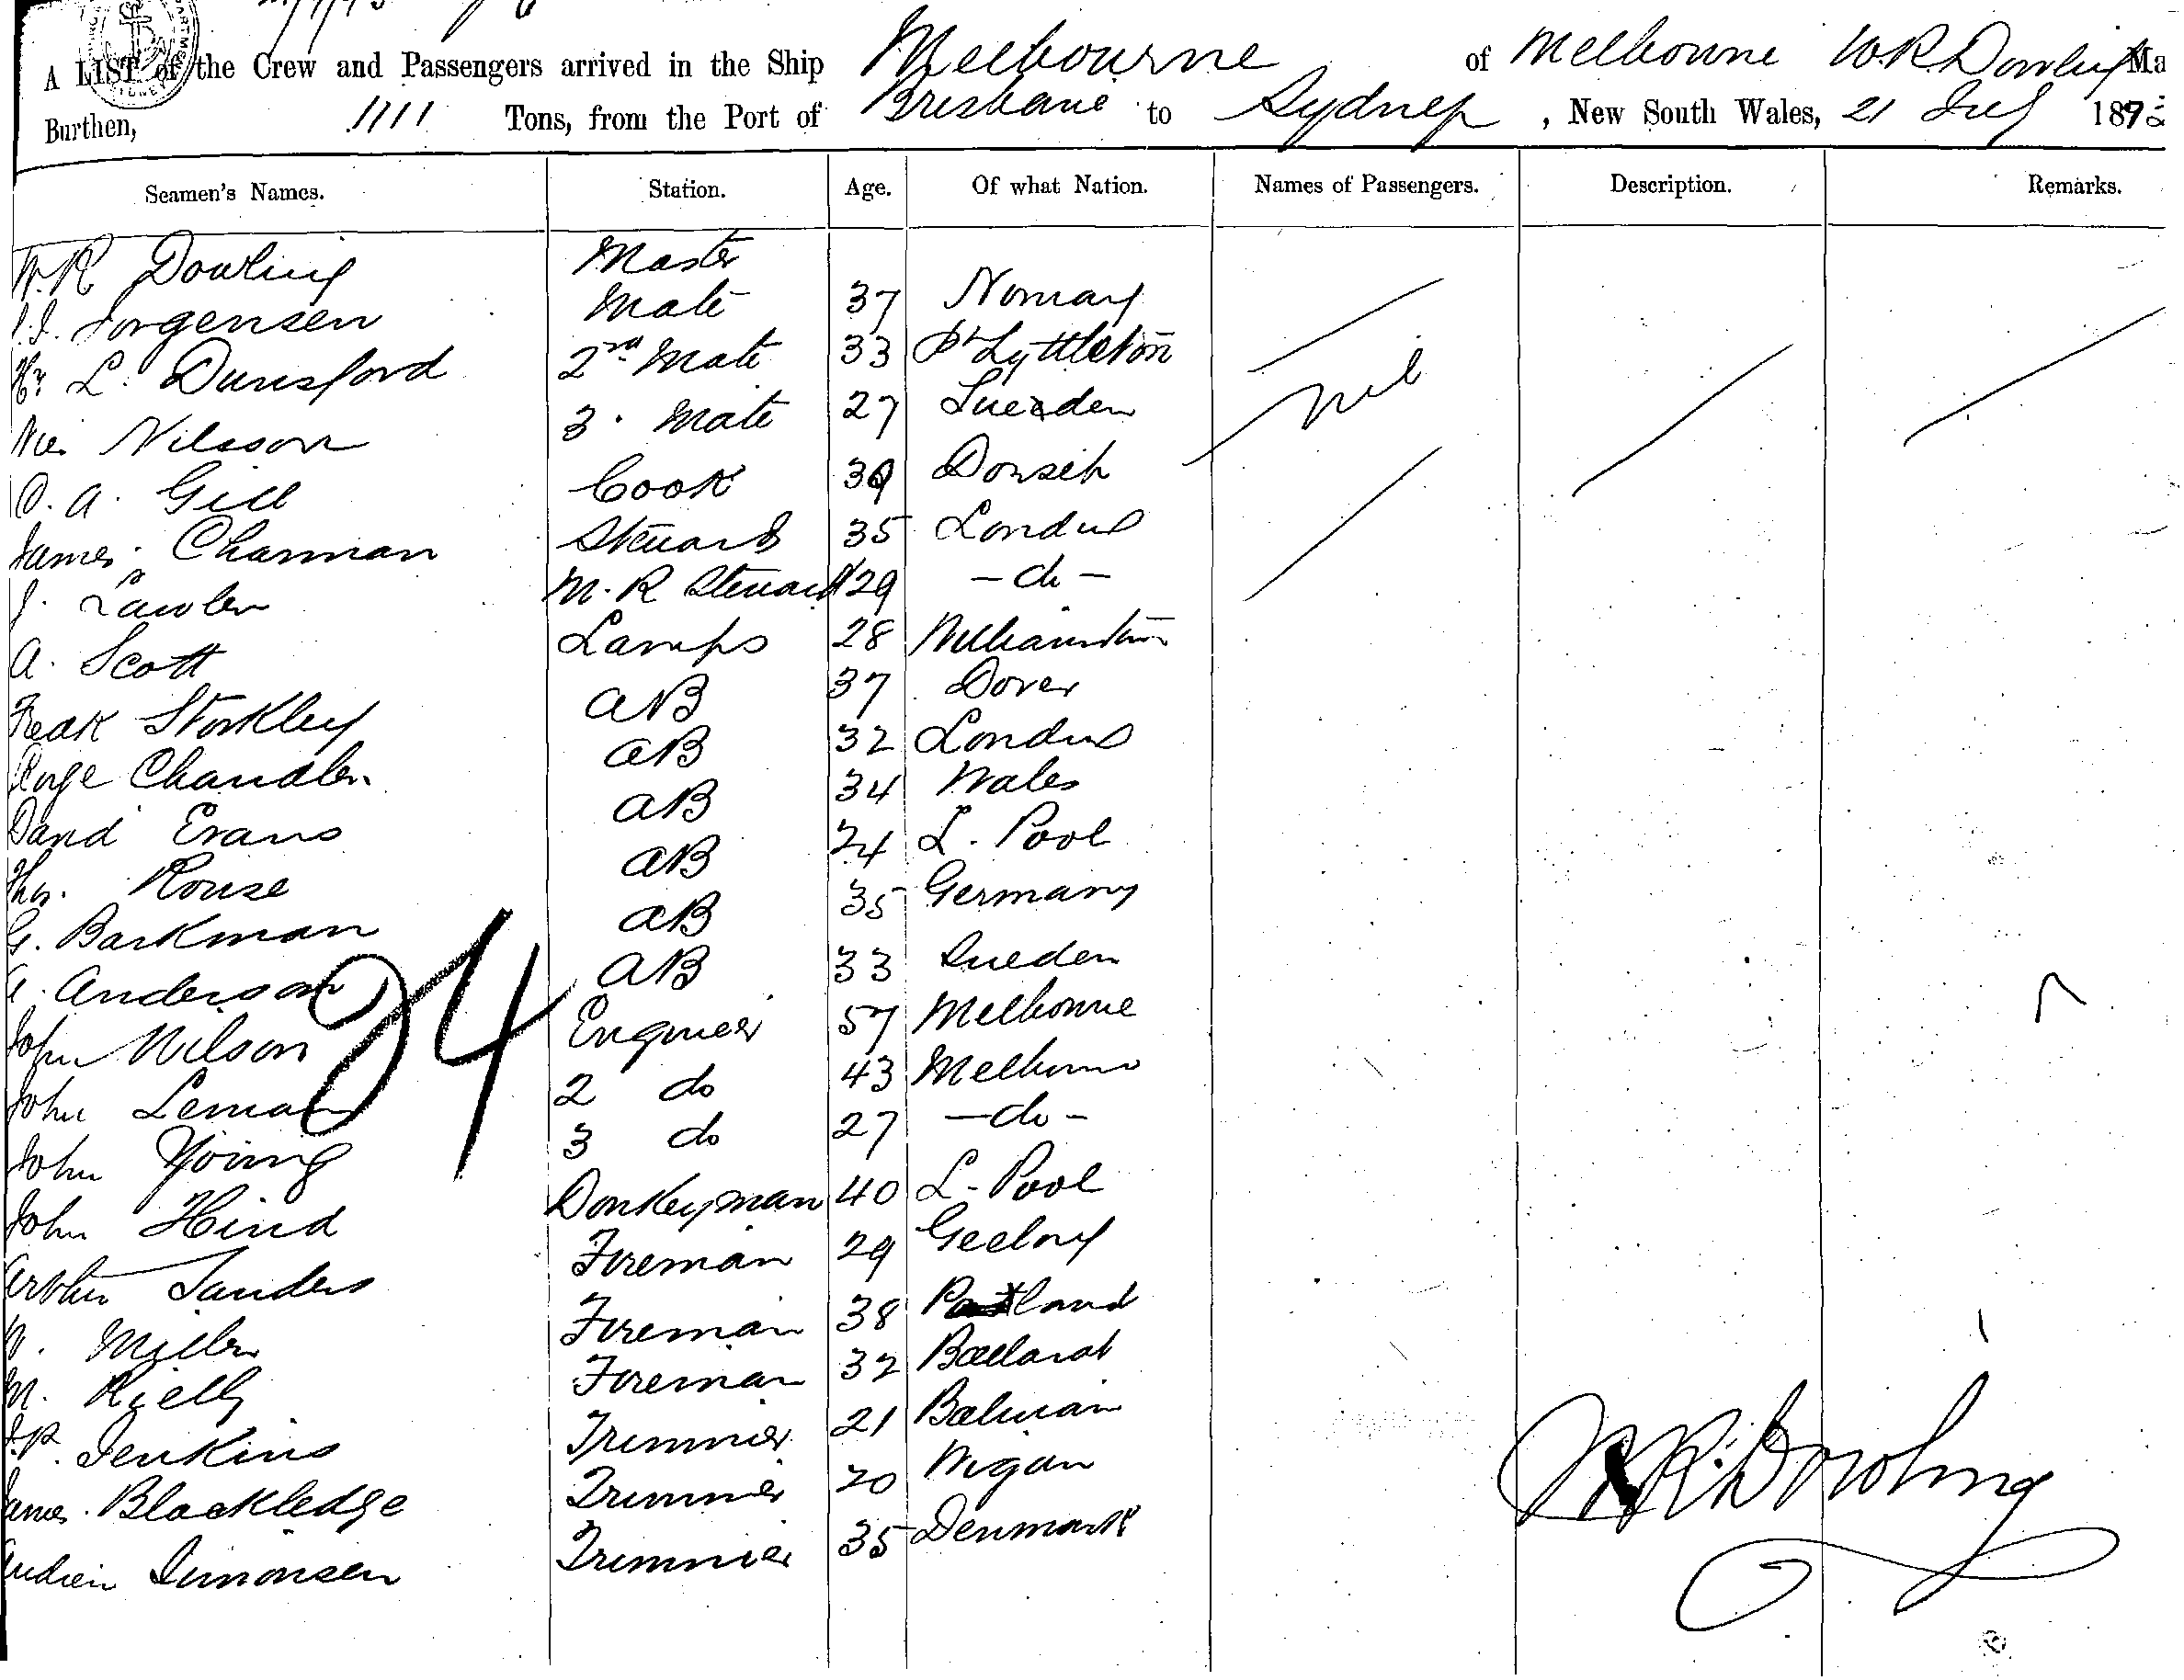 A LIST of the Crew and Passengers arrived in the Ship Melbourne of Melbourne W.R. Dowling Ma
Burthen, 1711 Tons, from the Port of Brisbane to Sydney, New South Wales, 21 July 189
Seamen's Names. Station. Age. Of what Nation. Names of Passengers. Description. Remarks.
W.R Dowling Master
Jorgensen Mate 37 Norway
Hy L. Dunsford 2nd Mate 33 Pt Lyttleton
Nilsson 3. Mate 27 Sueden nil
O. A. Gill Cook 39 Dorset
James Charman Steuard 35 London
J. Lawler M. R Steuard 29 - do -
A. Scott Lamps 28 Williamstown
Frank Storkley AB 37 Dover
George Chandler AB 32 London
David Evans AB 34 Wales
Thos. Rouse AB 24 L. Pool
G. Barkman AB 35 Germany
A. Anderson AB 33 Sueden
John Wilson Engineer 57 Melbourne
John Leman 2 do 43 Melbourne
John Young 3 do 27 - do -
John Hind Donkeyman 40 L. Pool
Arthur Sanders Fireman 29 Geelong
W. Miller Fireman 38 Portland
M. Rielly Fireman 32 Ballarat
Jenkins Trimmer 21 Balmain
James Blackledge Trimmer 20 Wigan
Simonsen Trimmer 35 Denmark
24
W.R. Dowling